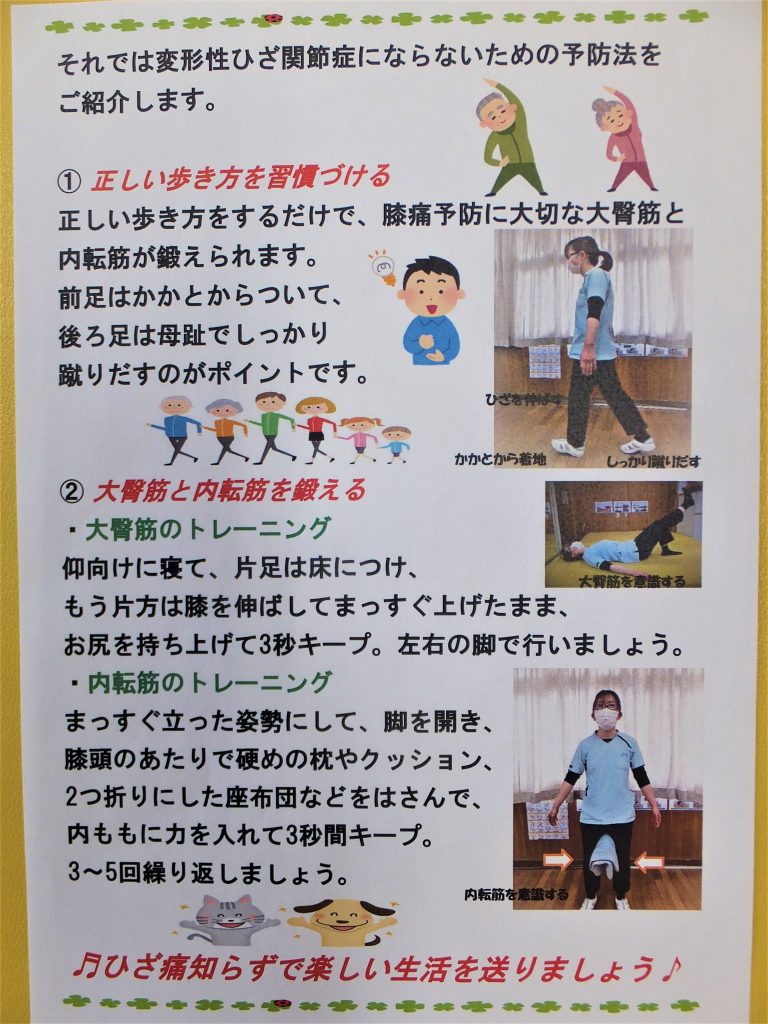 それでは変形性ひざ関節症にならないための予防法を
ご紹介します。
① 正しい歩き方を習慣づける
正しい歩き方をするだけで、膝痛予防に大切な大臀筋と
内転筋が鍛えられます。
前足はかかとからついて、
後ろ足は母趾でしっかり
蹴りだすのがポイントです。
ひざを伸ばす
かかとから着地
しっかり蹴りだす
② 大臀筋と内転筋を鍛える
・大臀筋のトレーニング
仰向けに寝て、片足は床につけ、
もう片方は膝を伸ばしてまっすぐ上げたまま、
お尻を持ち上げて3秒キープ。左右の脚で行いましょう。
大臀筋を意識する
・内転筋のトレーニング
まっすぐ立った姿勢にして、脚を開き、
膝頭のあたりで硬めの枕やクッション、
2つ折りにした座布団などをはさんで、
内ももに力を入れて3秒間キープ。
3～5回繰り返しましょう。
内転筋を意識する
♬ひざ痛知らずで楽しい生活を送りましょう♪